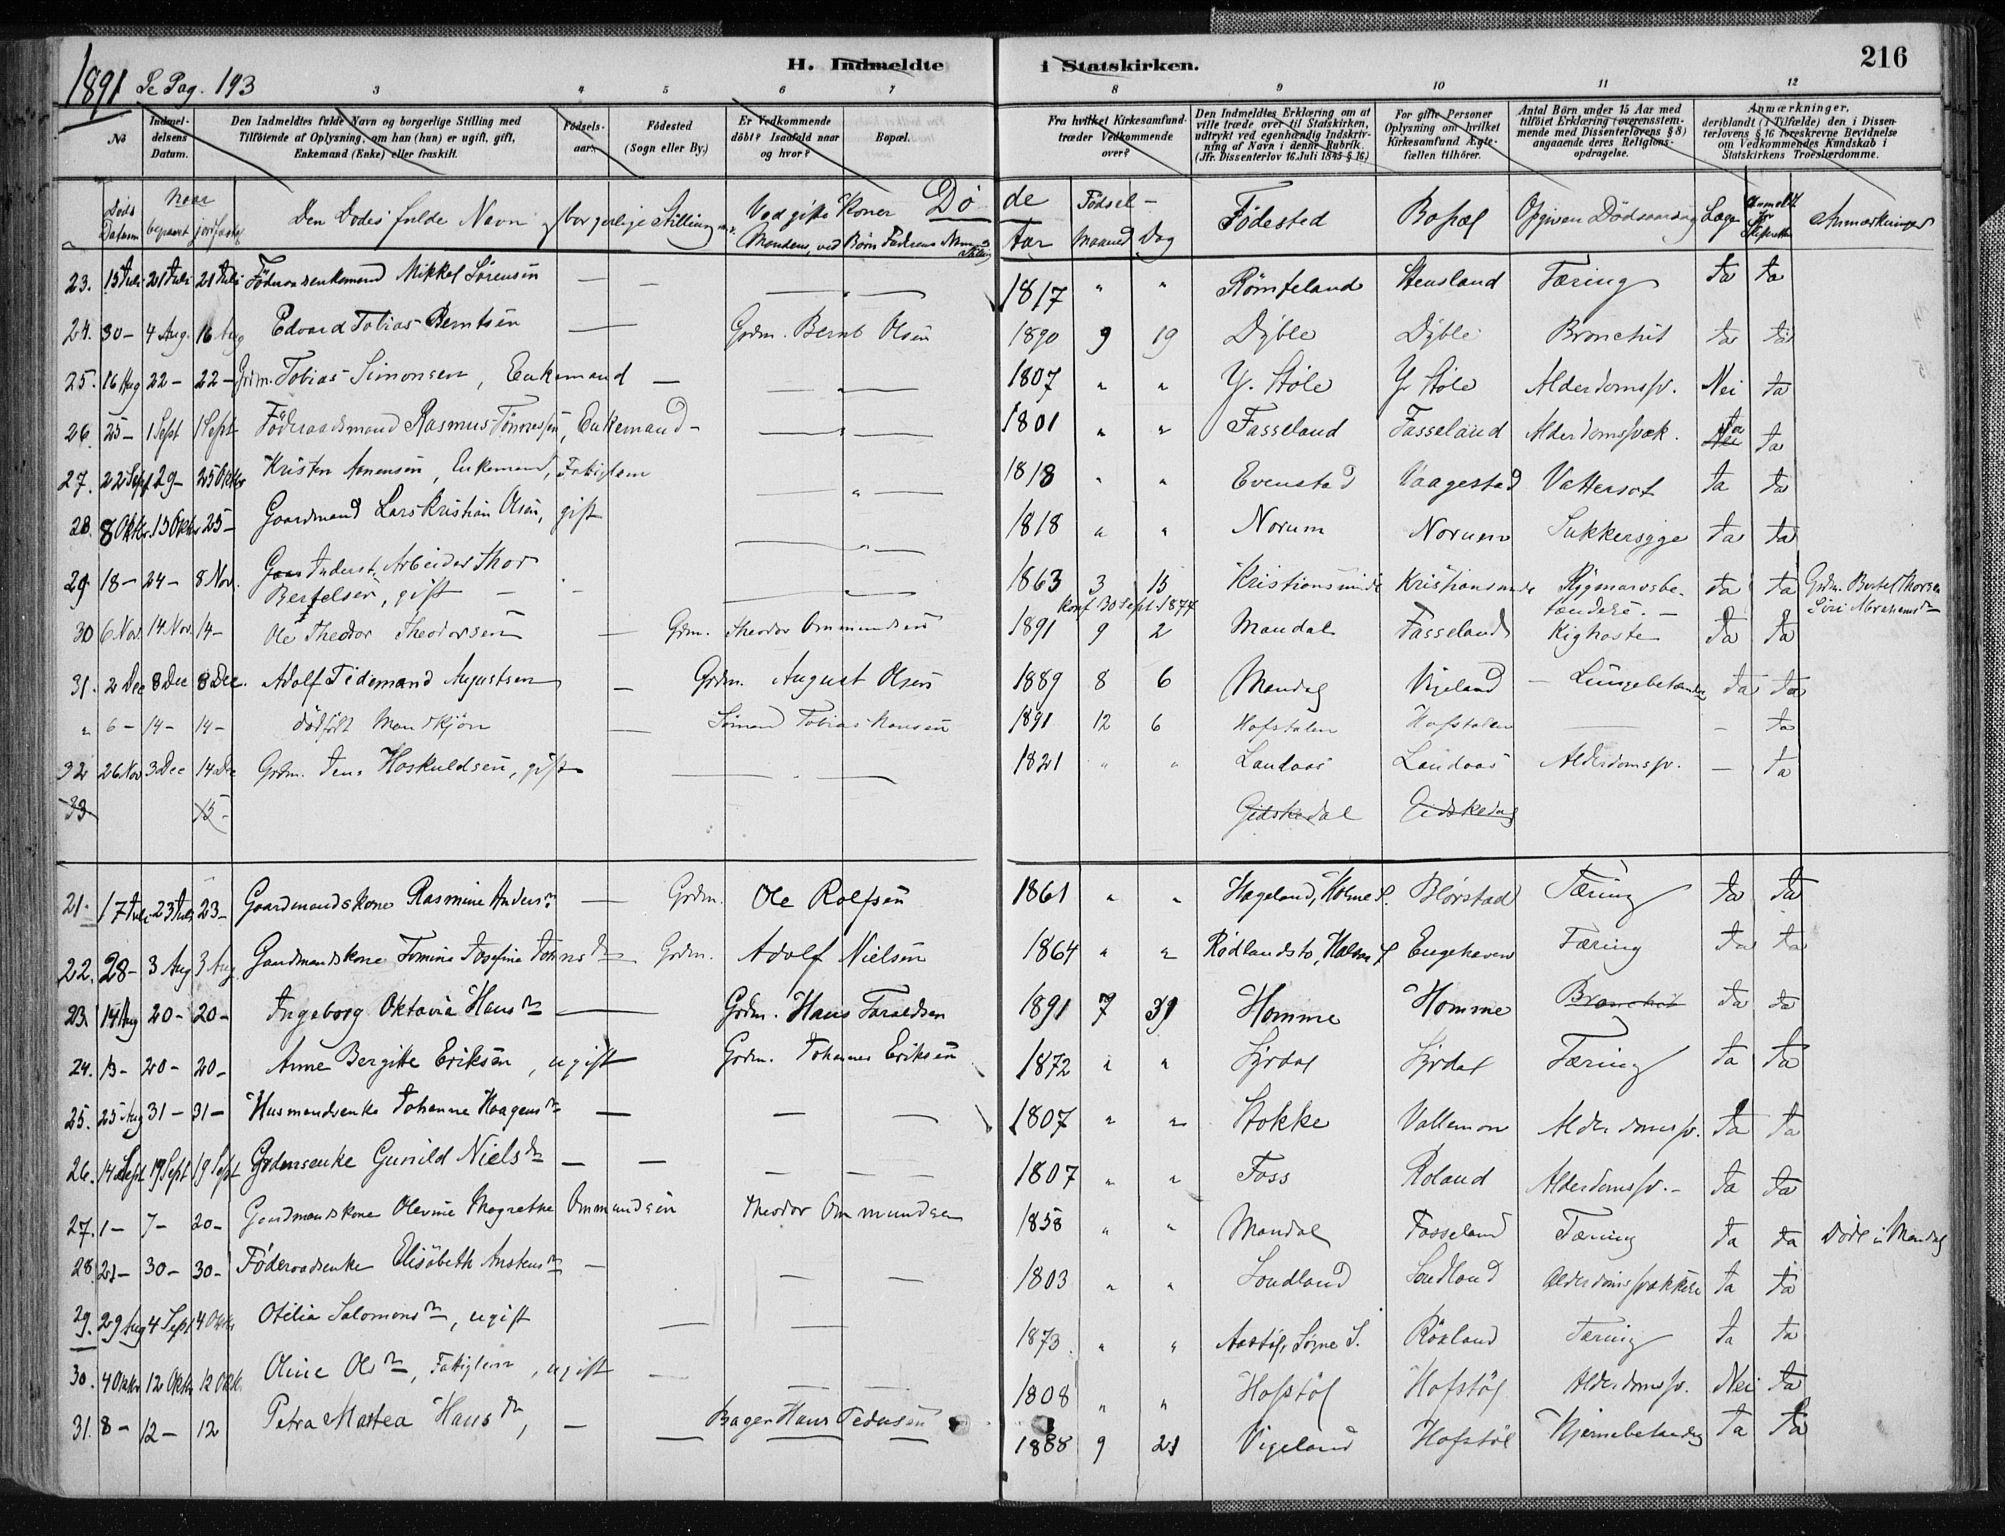 1891 Se Pag. 193
H. Indmeldte i Statskirken. 216
3 4 5 6 7 8 9 10 11 12
No Indmeldelsens Datum. Den Indmeldtes fulde Navn og borgerlige Stilling med Tilföiende af Oplysning, om han (hun) er ugift, gift, Enkemand (Enke) eller fraskilt. Födselsaar. Födested (Sogn eller By.) Er Vedkommende döbt? Isaafald naar og hvor? Bopæl. Fra hvilket Kirkesamfund træder Vedkommende over? Den Indmeldtes Erklæring om at ville træde over til Statskirken, udtrykt ved egenhændig Indskrivning af Navn i denne Rubrik. (Jfr. Dissenterlov 16 Juli 1845 § 16) For gifte Personer Oplysning om hvilket Kirkesamfund Ægtefællen tilhörer. Antal Börn under 15 Aar med tilföiet Erklæring (overensstemmende med Dissenterlovens § 8) angaaende deres Religionsopdragelse. Anmærkninger, deriblandt (i Tilfælde) den i Dissenterlovens § 16 foreskrevne Bevidnelse om Vedkommendes Kundskab i Statskirkens Troeslærdomme.
Døds Datum Naar begravet jordfæstet Den Dødes fulde Navn og borgerlige Stilling Ved gifte Koner Mandens, ved Børn Faderens Navn Stilling Døde Fødsel- Aar Maaned Dag Fødested Bopæl Opgiven Dødsaarsag Læge Anmeldt for Skifteretten Anmærkninger
23. 15 Juli 21 Juli 21 Juli Föderaadsenkemand Mikkel Sörensen — — — " — 1817 " " Römteland Stensland Tæring Ja Ja
24. 30 - 4 Aug. 16 Aug Edvard Tobias Berntsen — Grdm. Bernt Olsen 1890 9 19 Dÿble Dÿble Bronchit Ja Ja
25. 16 Aug 22 - 22 - Grdm. Tobias Simonsen, Enkemand — — " — 1807 " " Y. Støle Y. Støle Alderdomssv. Nei Ja
26. 25 - 1 Sept 1 Sept Föderaadsmand Rasmus Tönnessen, Enkemand - — " — 1801 " " Fasseland Fasseland Alderdomssvæk. Ja Nei Ja
27. 22 Sept 29 - 25 Oktbr Kristen Aanensen, Enkemand, Fattiglem — " — 1818 " " Evenstad Vaagestad Vattersot Ja Ja
28. 8 Oktbr. 13 Oktbr 25 - Gaardmand Lars Kristian Olsen, gift — " — 1818 " " Norum Norum Sukkersyge Ja Ja
29. 18 - 24 - 8 Nov. Gaar Inderst, Arbeider Thor Bertelsen, gift — - — " — 1863 3 15 Konf 30 Sept. 1877 Kristiansminde Kristiansminde Rygmarvsbetændelse. — Ja Ja Grdm. Bertel Thorsen
30 6 Nov. 14 Nov. 14 - Ole Theodor Theodorsen — Grdm. Theodor Ommundsen 1891 9 2 Mandal Fasseland Kighoste Ja Ja
31. 2 Dec 8 Dec 8 Dec. Adolf Tidemand Augustsen — Grdm. August Olsen 1889 8 6 Mandal Vigeland — Lungebetændelse Ja Ja
" 6 - 14 - 14 - Dødfødt Mandkjön — Sömand Tobias Hansen 1891 12 6 Hofstølen Hofstølen — — Ja
32 26 Nov 3 Dec 14 Dec Grdm. Jens Hoskuldsen, gift — " — 1821 " " Landaas Landaas Alderdomssv. — Ja
33 15 - Eidskedal Eidskedal
21. 17 Juli 23 Juli 23 - Gaardmandskone Rasmine Andersdr. — Grdm. Ole Rolfsen 1861 " " Hageland, Holme S. Blörstad Tæring Ja Ja
22. 28 - 3 Aug 3 Aug Gaardmandskone Tomine Josefine Jonsdr — Grdm. Adolf Nielsen 1864 " " Rödlandsto, Halsaa S Engehaven Tæring Ja Ja
23. 14 Aug 20 - 20 - Ingeborg Oktavia Hansdr — Grdm. Hans Taraldsen 1891 7 31 Homme Homme Bronchit Ja Ja
24. 13 - 20 - 20 - Anne Bergitte Eriksen, ugift Grdm. Johannes Eriksen 1872 " " Lÿrdal Lÿrdal Tæring Ja Ja
25. 25 Aug 31 - 31 - Husmandsenke Johanne Haagensdr — — — 1807 " " Stokke Vallemon Alderdomssv. Ja Ja
26. 14 Sept 19 Sept 19 Sept Grdmsenke Gunild Nielsdr — — — — 1807 " " Foss Roland Alderdomssv. - Ja Ja
27. 1 - 7 - 20 - Gaardmandskone Olevine Magrethe Ommundsen Theodor Ommundsen 1858 " " Mandal Fasseland Tæring Ja Ja Döde i Mandal
28 21 - 30 - 30 - Föderaadsenke Elisabeth Anstensdr — — — 1803 " " Sondland Sondland Alderdomssvakkelse Ja Ja
29. 29 Aug 4 Sept 4 Oktbr Otilia Salomonsdr, ugift — — 1873 " " Aastöl, Søgne S. Röiland Tæring Ja Ja
30. 4 Oktbr 12 Oktbr 12 Oktbr. Oline Olsdr, Fattiglem, ugift — — — 1808 " " Hofstöl Hofstöl Alderdomssv. Nei Ja
31. 8 - 12 - 12 Petra Mattea Hansdr, — Bager Hans Pedersen 1888 9 21 Vigeland Hofstöl Hjernebetændelse Ja Ja